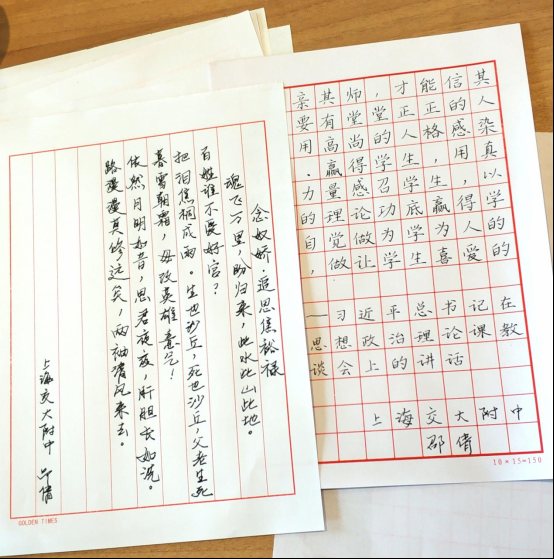 念奴娇·追思焦裕禄
魂飞万里，盼归来，此水此山此地。
百姓谁不爱好官？
把泪焦桐成雨。生也沙丘，死也沙丘，父老生死
暮雪朝霜，毋改英雄意气！
依然月明如昔，思君夜夜，肝胆长如洗。
路漫漫其修远矣，两袖清风来去。
上海交大附中 邵倩
GOLDEN TIMES
亲其师，才能信其
要有堂堂正正的人
用高尚的人格感染
。赢得学生，用真
力量感召学生，以
的理论功底赢得学
自觉做为学为人的
，做让学生喜爱的
——习近平总书记在
思想政治理论课教
谈会上的讲话
上海交大附中
邵倩
10×15=150